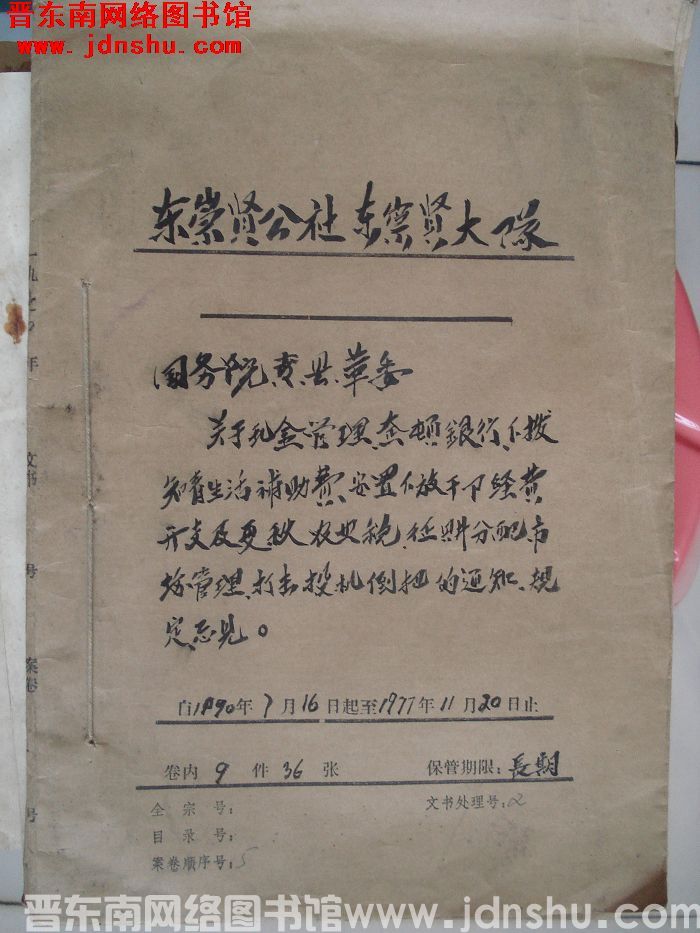 晋东南网络图书馆
www.jdnshu.com
东崇贤公社东崇贤大队
国务院 革委
关于现金管理 整顿銀行下拨
知青生活補助費 安置下放干卩经費
开支及夏秋农业税 征购分配市
场管理 打击投机倒把的通知、规
定 意见。
自 年7月16日起至1977年11月20日止
卷内9件36张 保管期限：長期
全宗号： 文书处理号：2
目录号：
案卷顺序号：5
年
文书
号
案卷
号
晋东南网络图书馆www.jdnshu.com